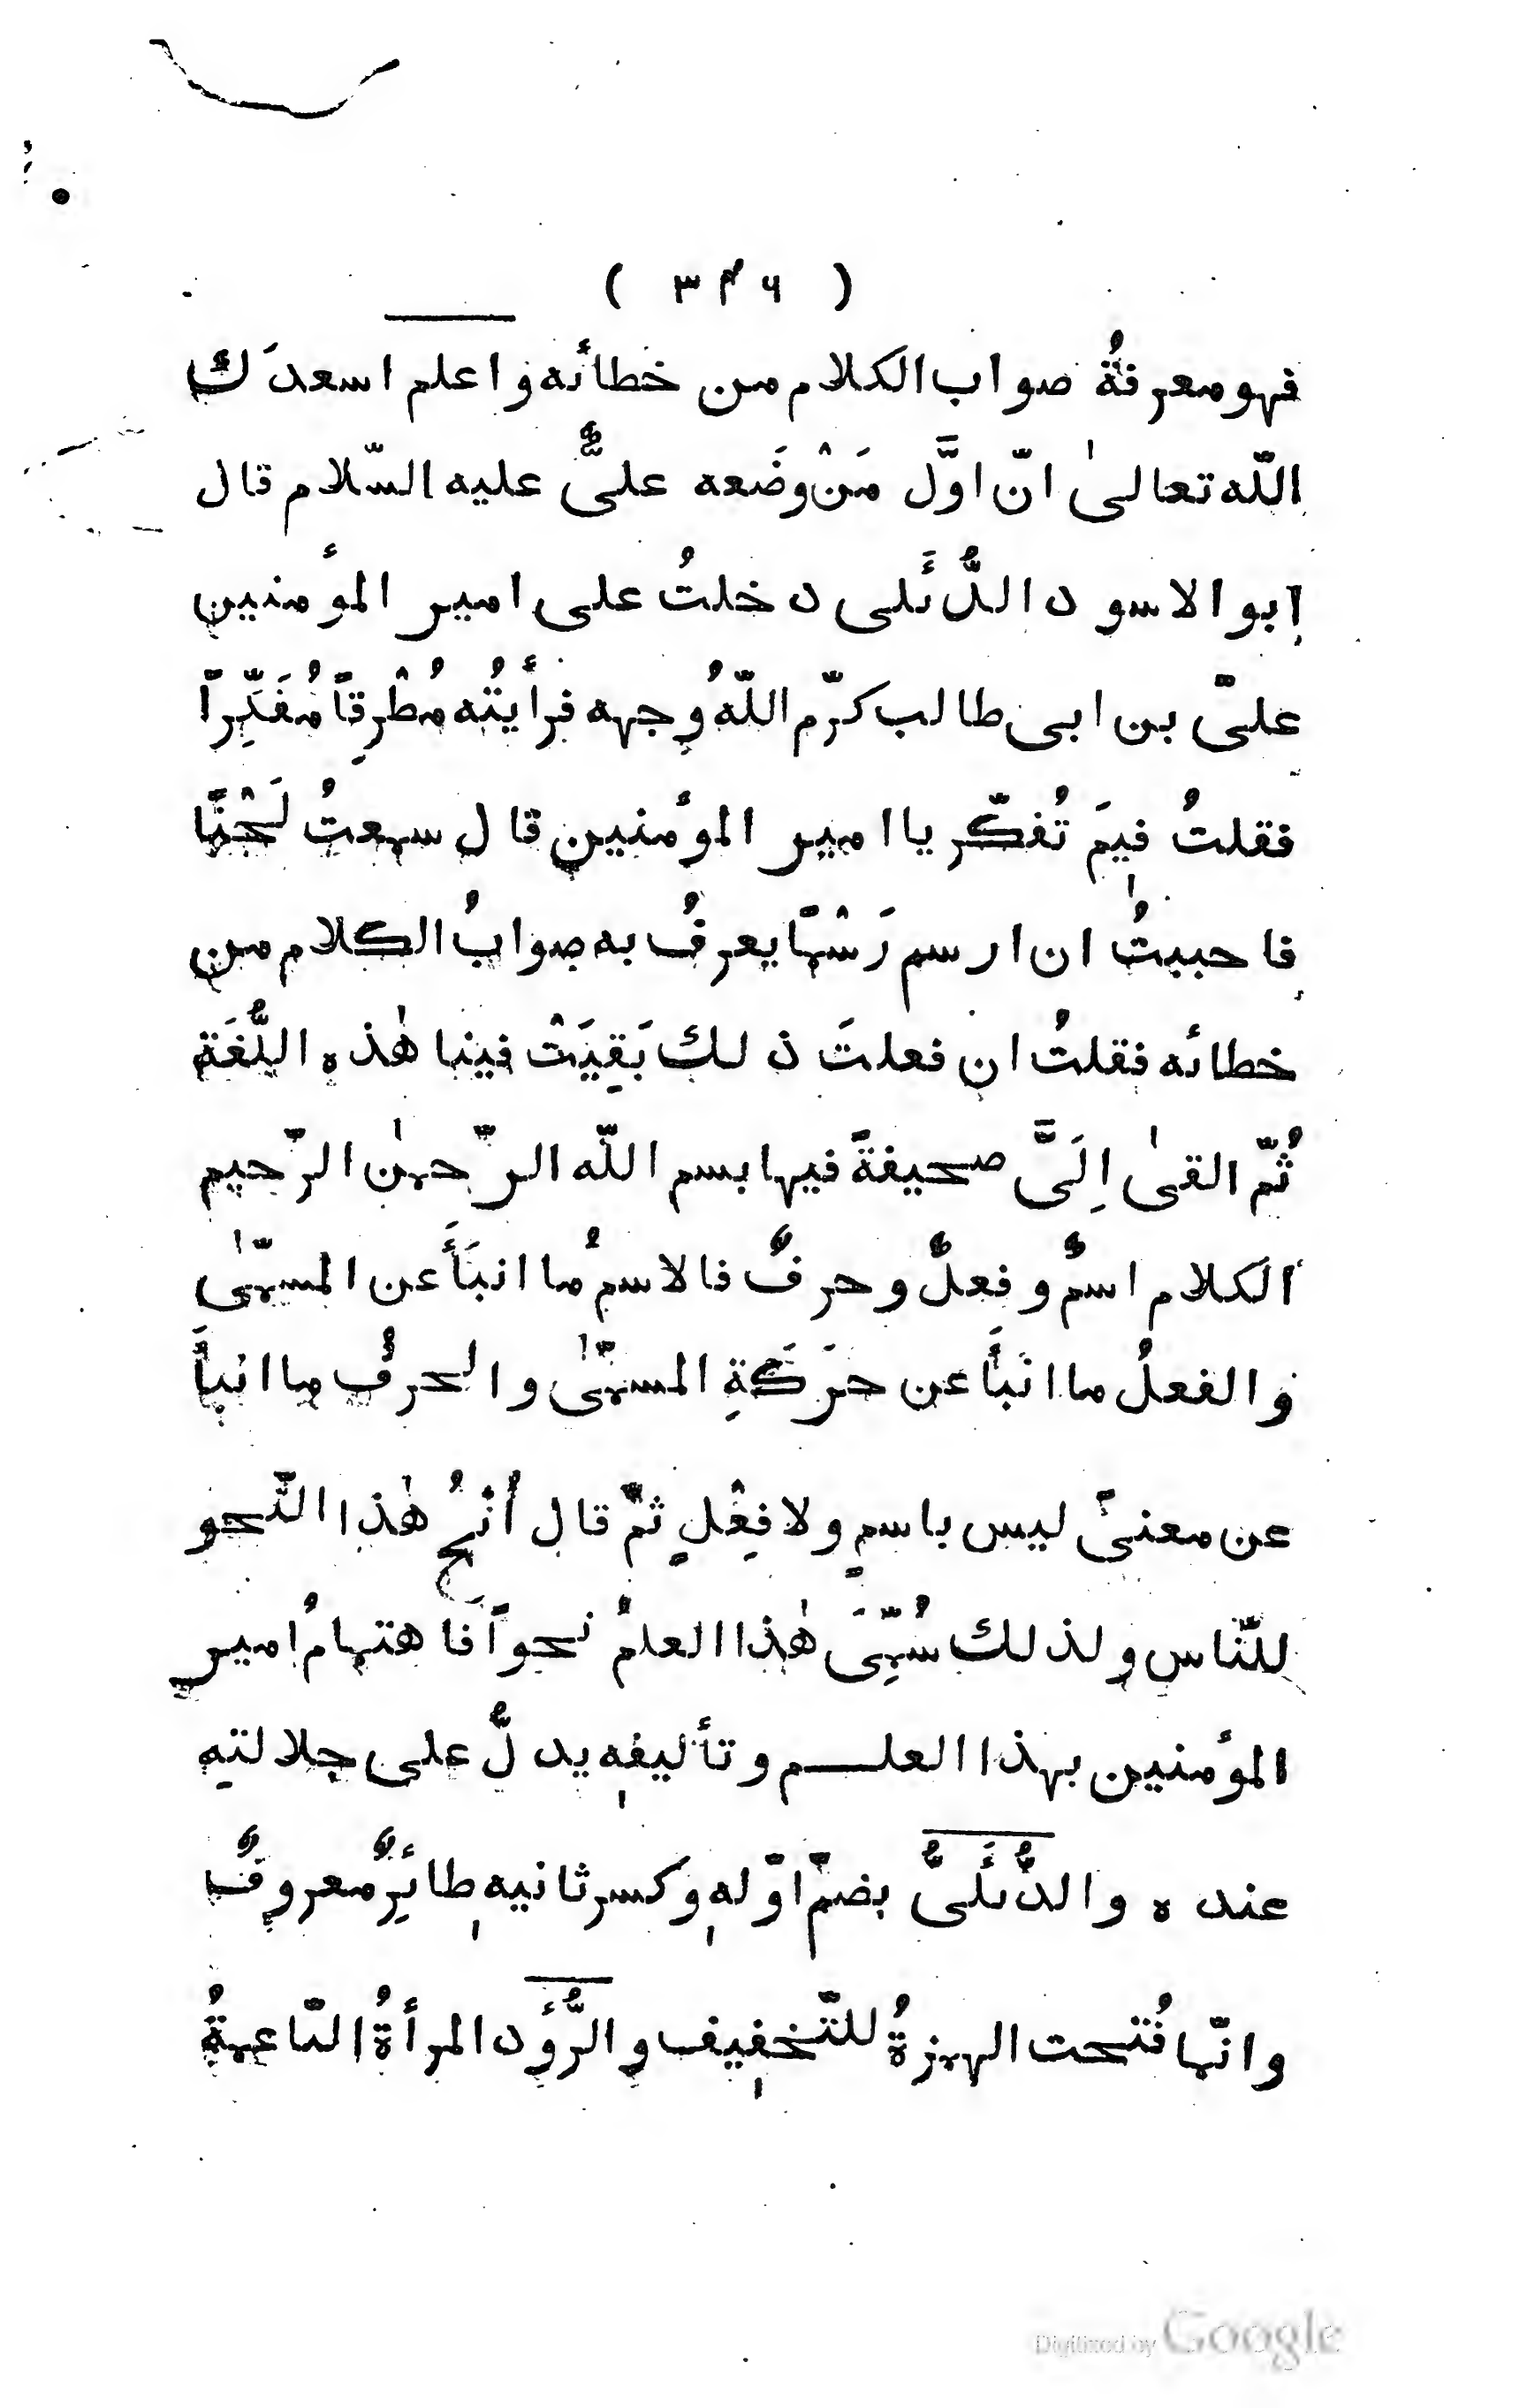 ( ٣٤٦ )
فهو معرفةُ صواب الكلام من خطائه واعلم اسعدَك
اللّه تعالىٰ انّ اوَّل مَنْ وضَعه علىٌّ عليه السّلام قال
ابو الاسود الدُّئَلى دخلتُ على امير المؤمنين
علىّ بن ابى طالب كرّم اللّهُ وجهه فرأيتُه مُطْرِقاً مُفَكِّراً
فقلتُ فيمَ تُفكّر يا امير المؤمنين قال سمعتُ لَحْنًا
فاحببتُ ان ارسم رَسْمًا يعرفُ به صوابُ الكلام من
خطائه فقلتُ ان فعلتَ ذلك بَقِيَتْ فينا هٰذه اللُّغَة
ثُمّ القىٰ اِلَىَّ صحيفةً فيها بسم اللّه الرّحمٰن الرّحيم
الكلام اسمٌ وفعلٌ وحرفٌ فالاسمُ ما انبَأَ عن المسمّىٰ
والفعلُ ما انبَأَ عن حرَكَةِ المسمّىٰ والحرفُ ما انبأَ
عن معنىً ليس باسمٍ ولا فِعْلٍ ثمّ قال اُنْحُ هٰذا النّحو
للنّاس ولذلك سُمِّىَ هٰذا العلمُ نحواً فاهتمامُ امير
المؤمنين بهذا العلـــم وتأليفهٖ يدلُّ على جلالتهِ
عنده والدُّئَلىُّ بضمّ اوّلهٖ وكسر ثانيهٖ طائِرٌ معروفٌ
وانّما فُتحت الهمزةُ للتّخفيف والرُّؤَد المرأةُ النّاعمةُ
Digitized by Google